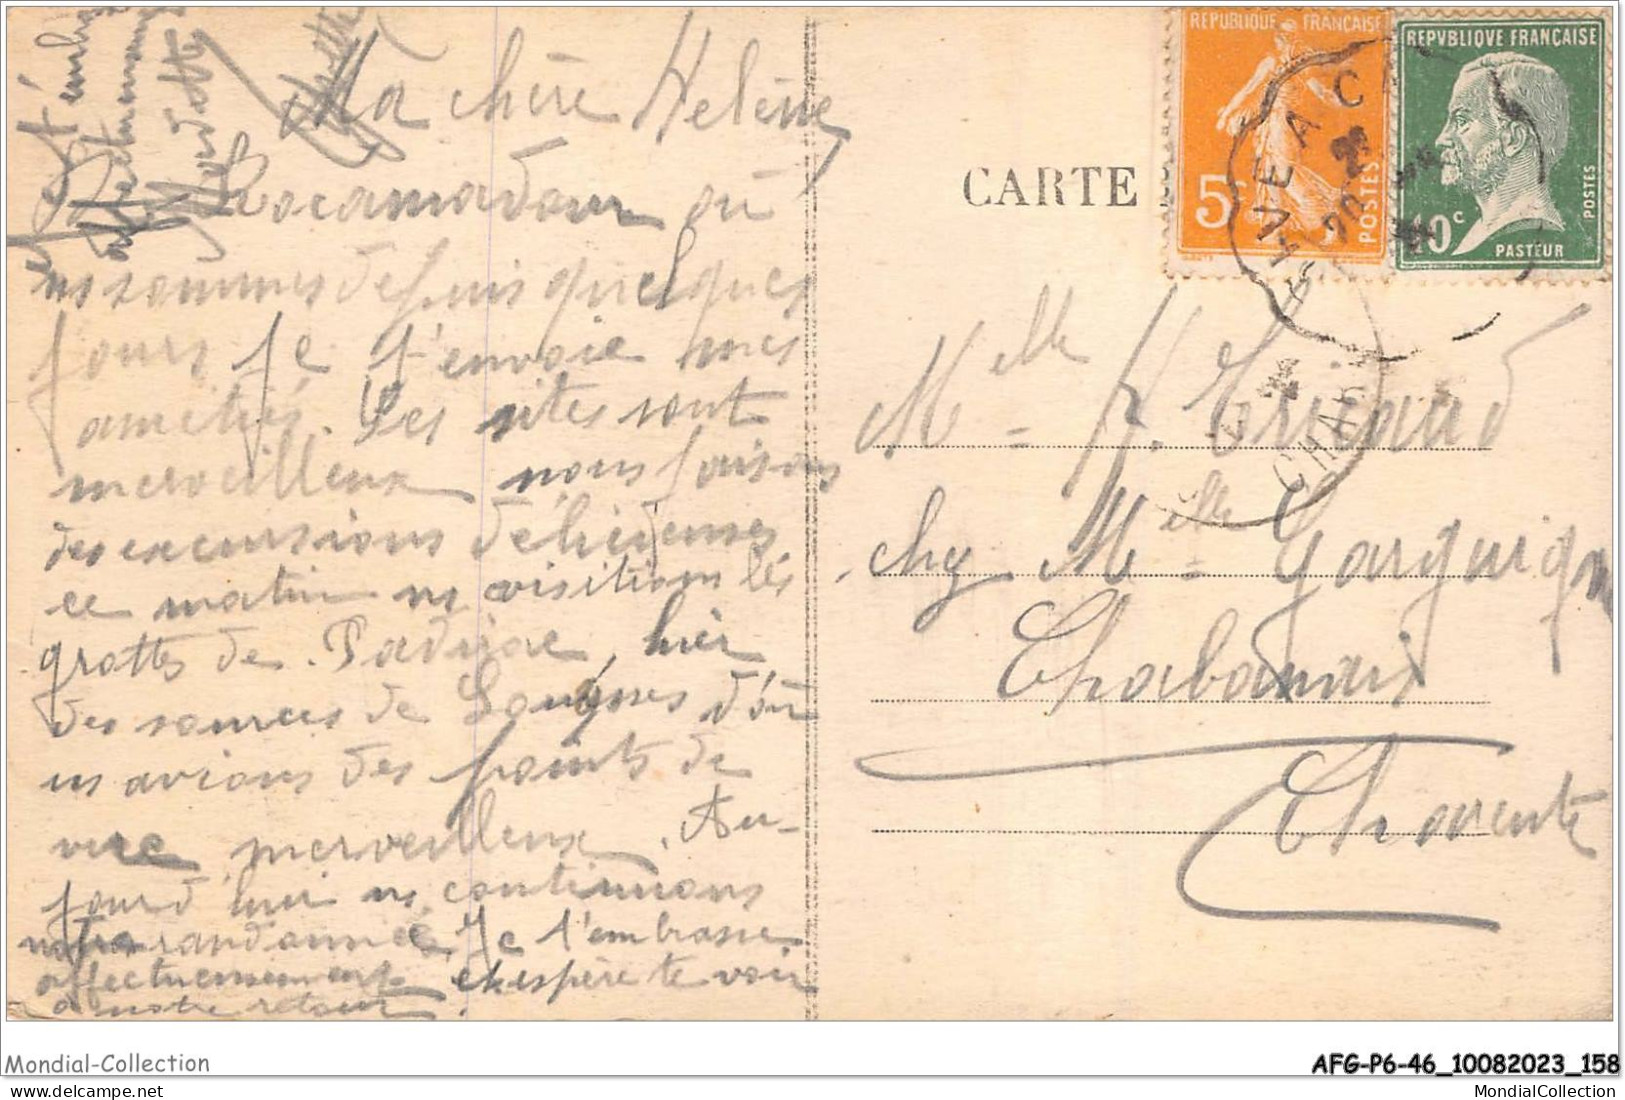 Ma chère Helène
Rocamadour où
ns sommes depuis quelques
jours je t'envoie mes
amitiés. Les sites sont
merveilleux nous faisons
des excursions délicieuses
ce matin ns visitions les
grottes de Padirac, hier
des sources de d'où
ns avions des points de
vue merveilleux. Au-
jourd'hui ns continuons
notre randonnée. Je t'embrasse
affectueusement et espère te voir
à notre retour.
CARTE
REPUBLIQUE FRANÇAISE
5c
POSTES
REPVBLIQVE FRANÇAISE
10c
POSTES
PASTEUR
Melle H. Tricaud
chez Melle Garguign
Chabanais
Charente
Mondial-Collection
AFG-P6-46_10082023_158
MondialCollection